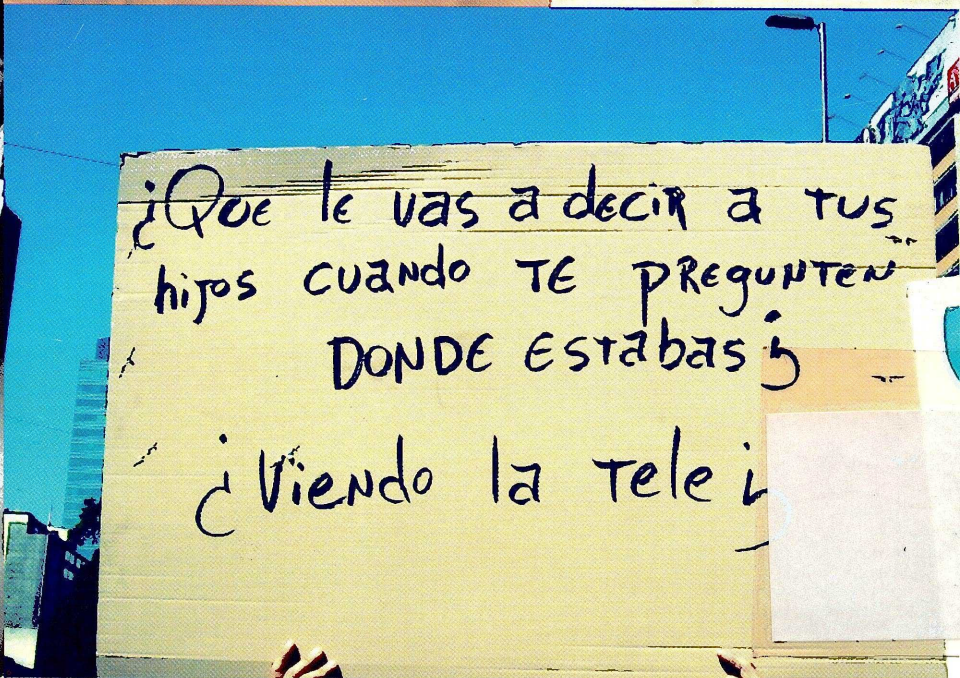 ¿Que le vas a decir a tus
hijos cuando te pregunten
DONDE estabas?
¿Viendo la tele?